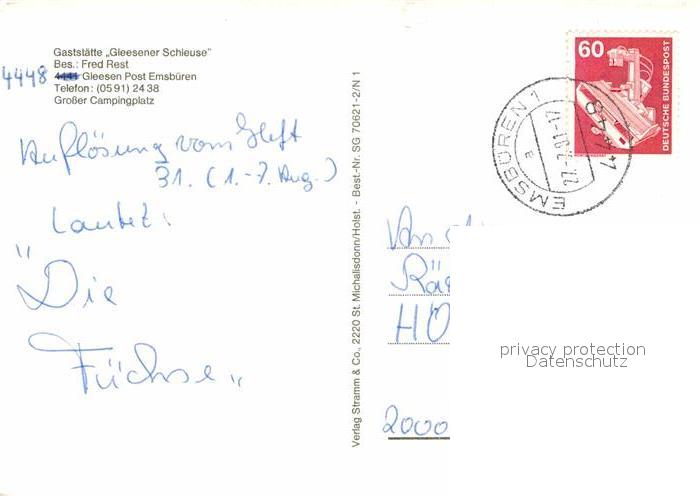 Gaststätte „Gleesener Schleuse"
Bes.: Fred Rest
4448 4441 Gleesen Post Emsbüren
Telefon: (05 91) 24 38
Großer Campingplatz
Auflösung vom Heft
31. (1.-7. Aug.)
Lautet:
"Die
Füchse"
Verlag Stramm & Co., 2220 St. Michaelisdonn/Holst. - Best.-Nr. SG 70621-2/N 1
60
DEUTSCHE BUNDESPOST
EMSBÜREN 1
e
An
Rä
HÖ
2000
privacy protection
Datenschutz